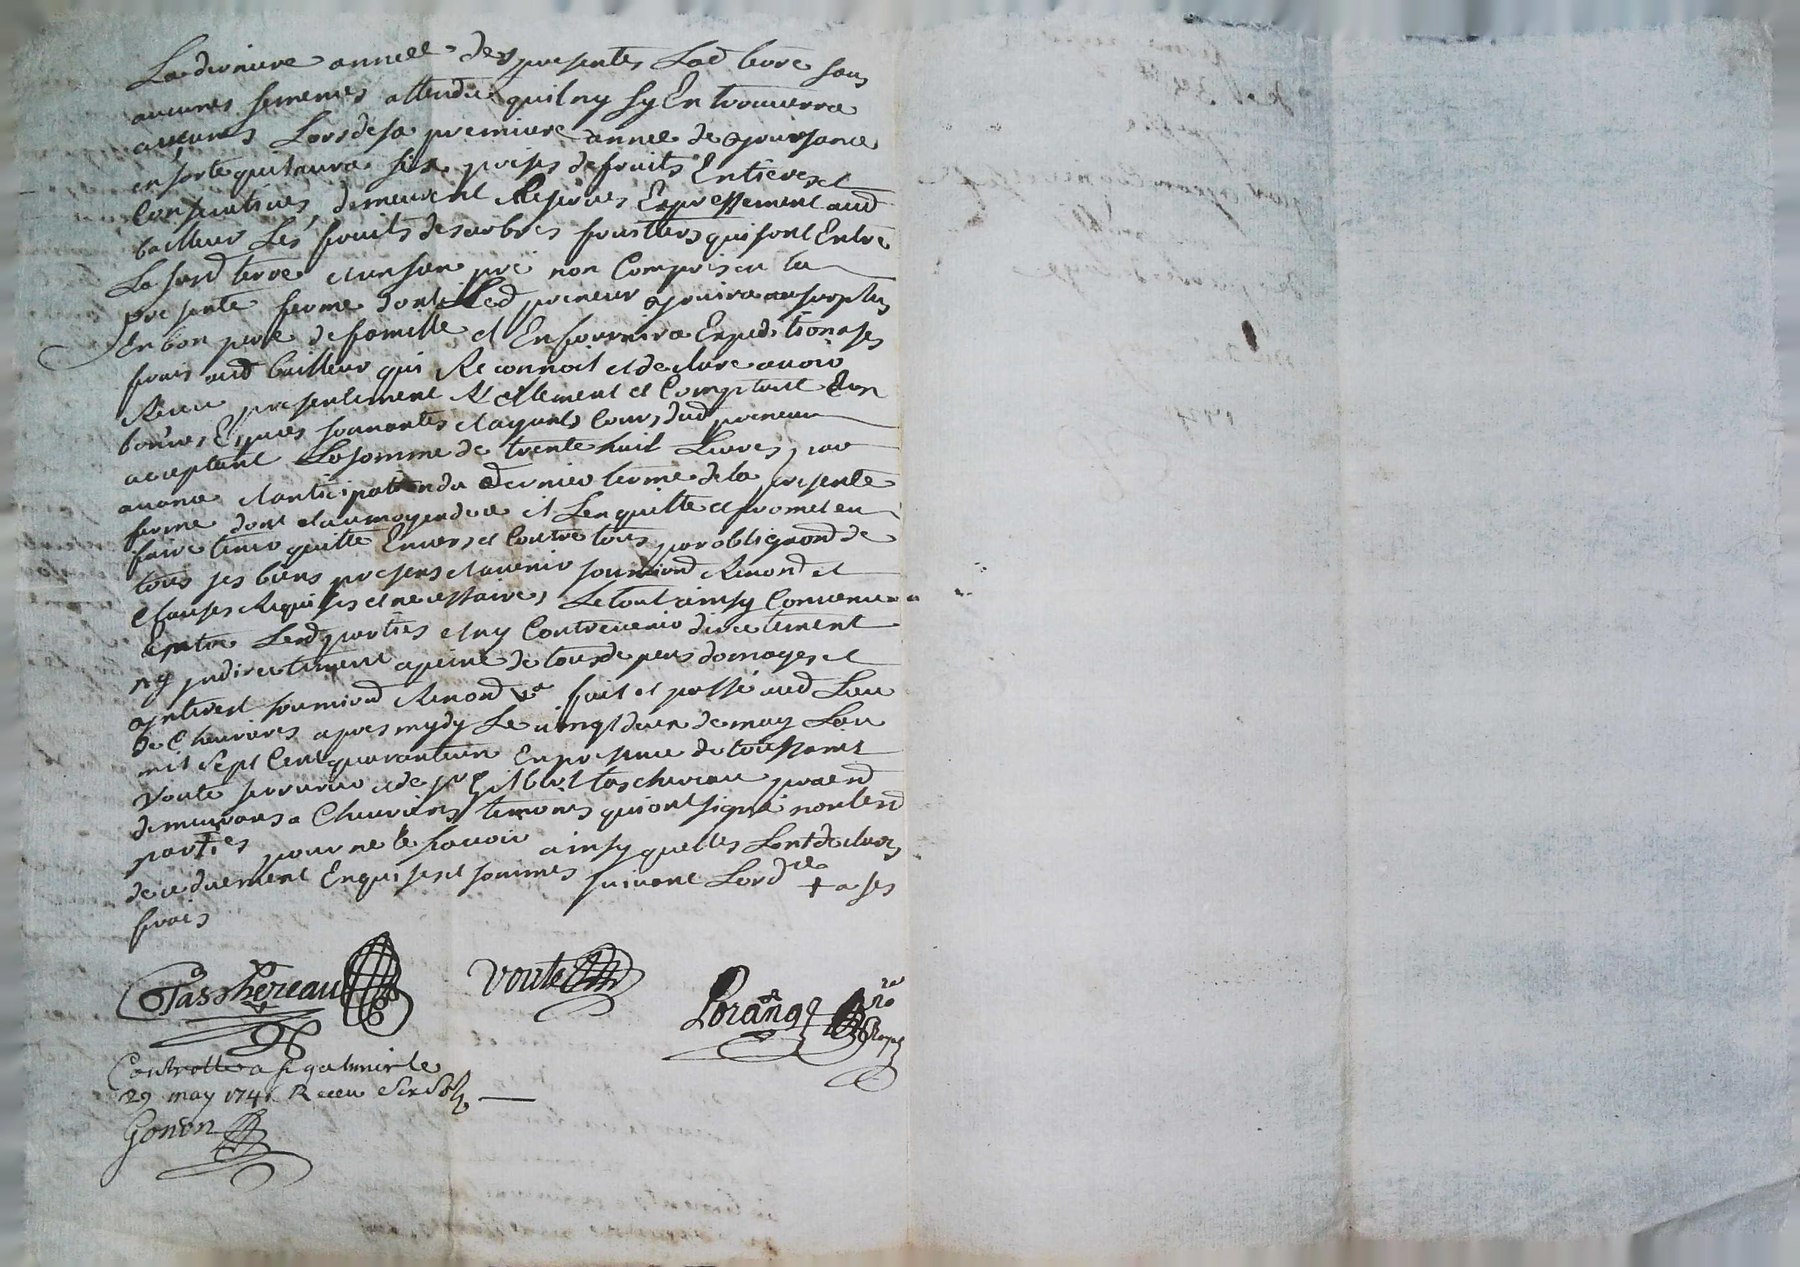 La derniere annee des presentes Lad terre sans
aucunes semences attendu quil ny sy En trouverra
aucunes Lors de sa premiere annee de Jouissance
en sorte quil aura six prises de fruits Entieres et
Consecutives, demeurent Reserves Expressement aud
bailleur Les fruits des arbres fruitiers qui sont Entre
La susd terre et un sien pré non Compris en la
presente ferme dont Led preneur Jouira au surplus
En bon pere de famille et En fournira Expedition a ses
frais aud bailleur qui Reconnoit et declare avoir
Receu presentement Reellement et Comptant En
bonnes Especes sonnantes et ayants Cours dud preneur
acceptant La somme de trente huit Livres par
avance et anticipation du dernier terme de la presente
ferme dont et au moyen de ce il Len quitte et promet en
faire tenir quitte Envers et Contre tous par obligaond de
tous ses biens presens et avenir soumiond Renond et
Clauses Requises et necessaires, Le tout ainsy Convenu
Entre Lesd parties et ny Contrevenir directement
ny indirectement a peine de tous depens domages et
interest soumiond Renond &a fait et passé aud Lieu
de Chevrieres apres mydy Le vingt deux de may Lan
mil sept Cent quarante un En presence de toussaint
Voute serrurier et de sr Gilbert taschereau praend
demeurans a Chevrieres temoins qui ont signé non lesd
parties pour ne le scavoir ainsy quelles Lont declaré
de ce duement Enquises et sommés suivant Lordce + a ses
frais
Taschereau Voute Lorang no Royal
Controllé a st galmier le
29 may 1741 Receu six sols
Gonon